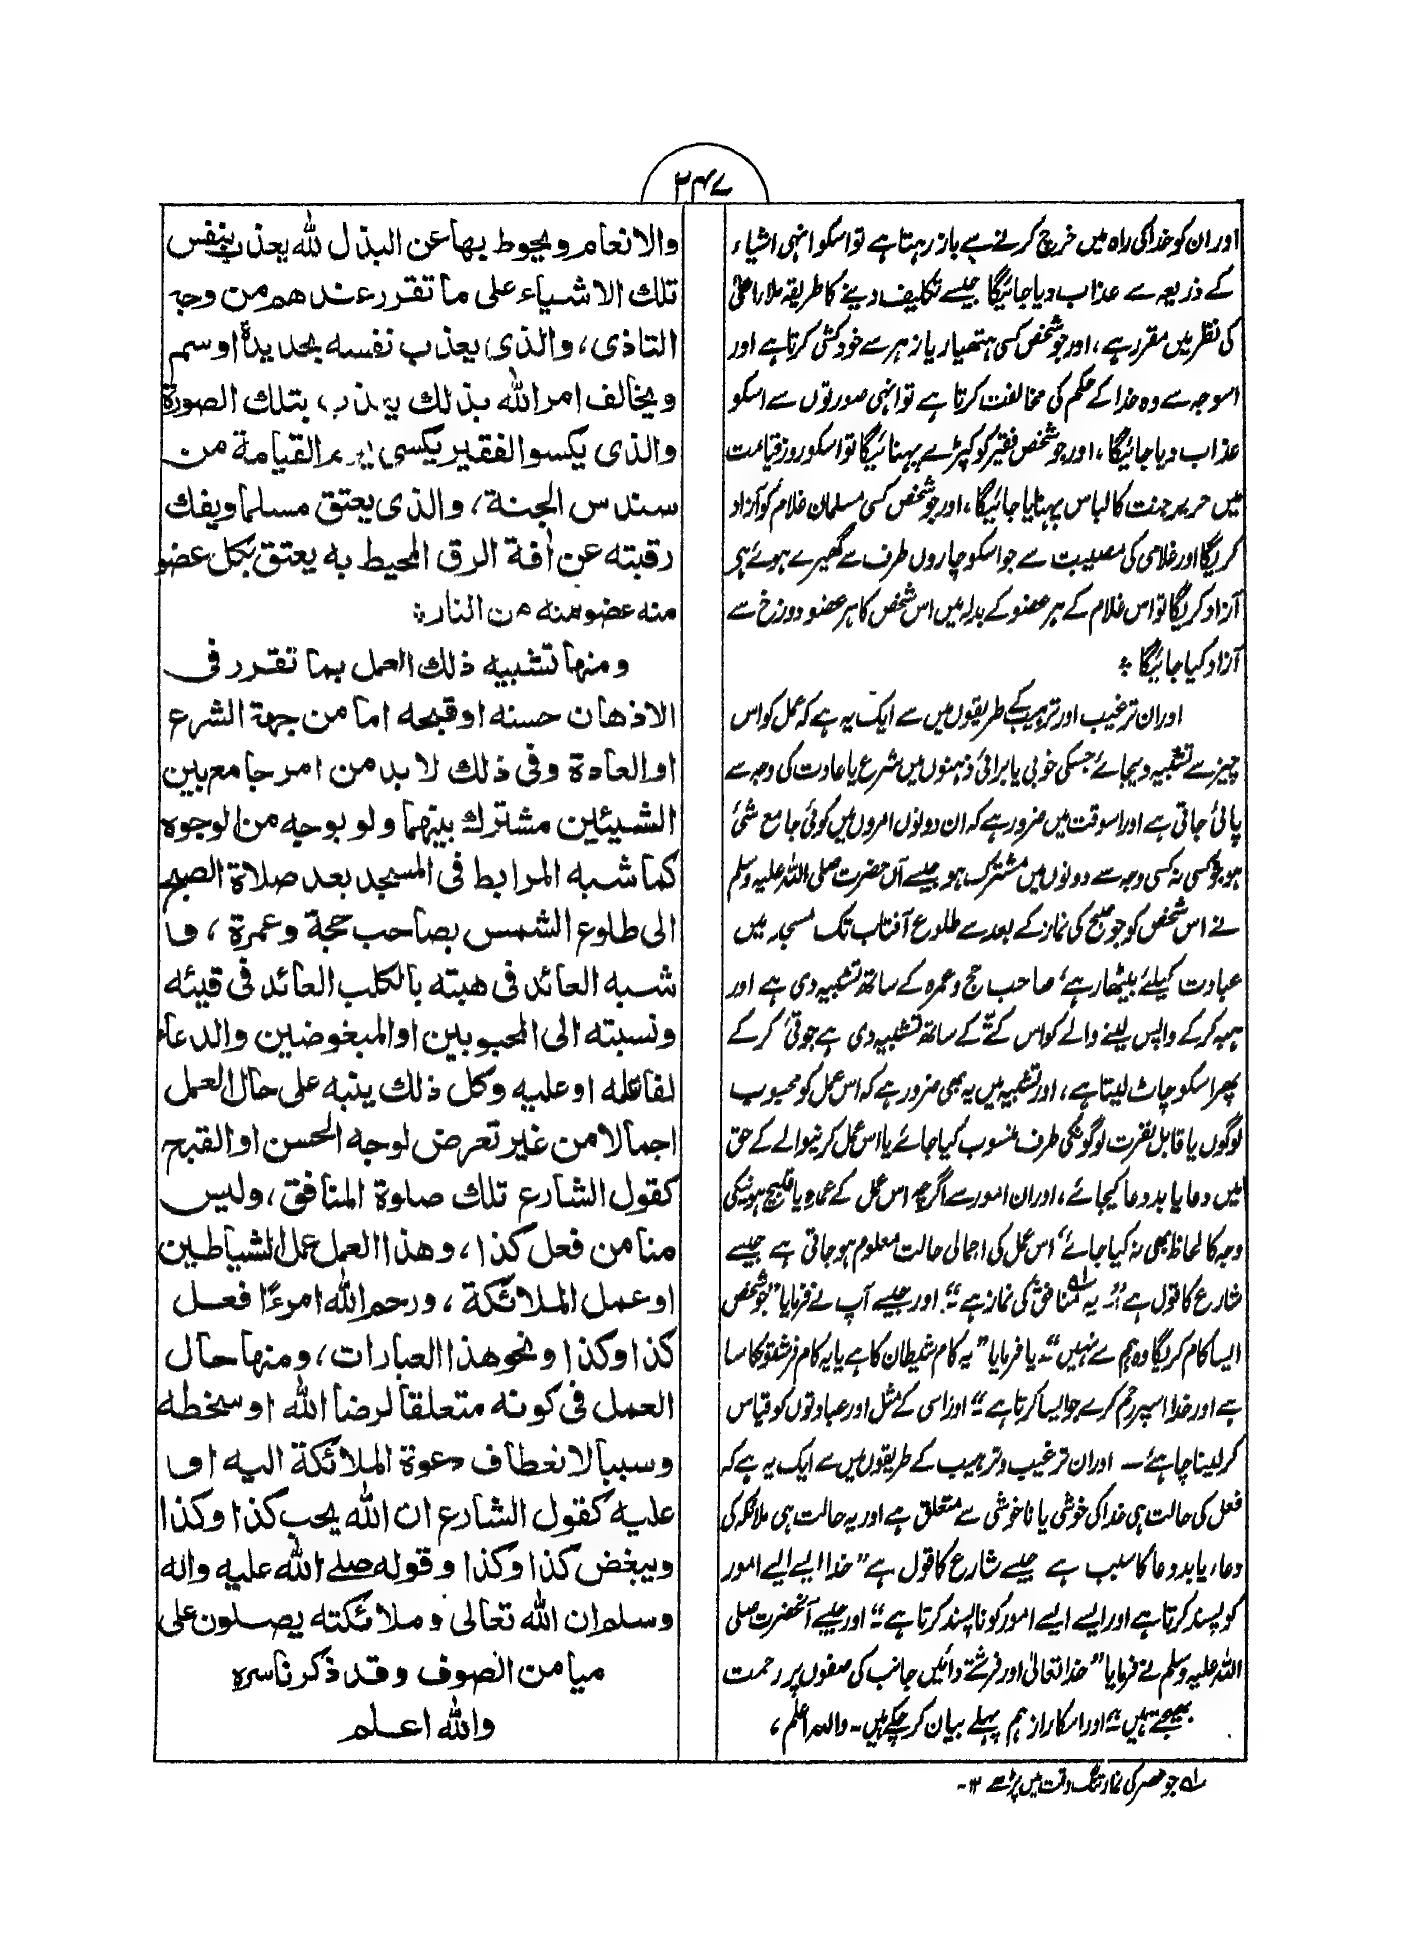 ۲۴۷
اور ان کو خدا کی راہ میں خرچ کرنے سے باز رہتا ہے تو اسکو انہی اشیاء
کے ذریعہ سے عذاب دیا جائیگا جیسے تکلیف دینے کا طریقہ ملاء اعلیٰ
کی نظر میں مقرر ہے، اور جو شخص کسی ہتھیار یا زہر سے خودکشی کرتا ہے اور
اسوجہ سے وہ خدا کے حکم کی مخالفت کرتا ہے تو انہی صورتوں سے اسکو
عذاب دیا جائیگا، اور جو شخص فقیر کو کپڑے پہنائیگا تو اسکو روز قیامت
میں حریر جنت کا لباس پہنایا جائیگا، اور جو شخص کسی مسلمان غلام کو آزاد
کریگا اور غلامی کی مصیبت سے جو اسکو چاروں طرف سے گھیرے ہوئے ہی
آزاد کریگا تو اس غلام کے ہر عضو کے بدلہ میں اس شخص کا ہر عضو دوزخ سے
آزاد کیا جائیگا ؞
اور ان ترغیب اور ترہیب کے طریقوں میں سے ایک یہ ہے کہ عمل کو اس
چیز سے تشبیہ دیجائے جسکی خوبی یا برائی ذہنوں میں شرع یا عادت کی وجہ سے
پائی جاتی ہے اور اسوقت میں ضرور ہے کہ ان دونوں امروں میں کوئی جامع شئ
ہو جو کسی نہ کسی وجہ سے دونوں میں مشترک ہو جیسے آں حضرت صلی اللہ علیہ وسلم
نے اس شخص کو جو صبح کی نماز کے بعد سے طلوع آفتاب تک مسجد میں
عبادت کیلئے بیٹھا رہے، صاحب حج و عمرہ کے ساتھ تشبیہ دی ہے اور
ہبہ کرکے واپس لینے والے کو اس کتّے کے ساتھ تشبیہ دی ہے جو قئ کرکے
پھر اسکو چاٹ لیتا ہے، اور تشبیہ میں یہ بھی ضرور ہے کہ اس عمل کو محبوب
لوگوں یا قابل نفرت لوگونکی طرف منسوب کیا جائے یا اس عمل کرنیوالے کے حق
میں دعا یا بد دعا کیجائے، اور ان امور سے اگرچہ اس عمل کے عمدہ یا قبیح ہونیکی
وجہ کا لحاظ بھی نہ کیا جائے، اس عمل کی اجمالی حالت معلوم ہو جاتی ہے جیسے
شارع کا قول ہے "یہ لہ منافق کی نماز ہے"۔ اور جیسے آپ نے فرمایا "جو شخص
ایسا کام کریگا وہ ہم سے نہیں"۔ یا فرمایا "یہ کام شیطان کا ہے یا یہ کام فرشتونکا سا
ہے اور خدا اسپر رحم کرے جو ایسا کرتا ہے"۔ اور اسی کے مثل اور عبادتوں کو قیاس
کر لینا چاہئے۔ اور ان ترغیب و ترہیب کے طریقوں میں سے ایک یہ ہے کہ
فعل کی حالت ہی خدا کی خوشی یا ناخوشی سے متعلق ہے اور یہ حالت ہی ملائکہ کی
دعاء یا بد دعا کا سبب ہے جیسے شارع کا قول ہے "خدا ایسے ایسے امور
کو پسند کرتا ہے اور ایسے ایسے امور کو ناپسند کرتا ہے"۔ اور جیسے آنحضرت صلی
اللہ علیہ وسلم نے فرمایا "خدا تعالیٰ اور فرشتے دائیں جانب کی صفوں پر رحمت
بھیجتے ہیں" اور اسکا راز ہم پہلے بیان کر چکے ہیں۔ واللہ اعلم،
والانعام ويحوط بها عن البذل لله يعذب بنفس
تلك الاشياء على ما تقرر عندهم من وجه
التاذى، والذى يعذب نفسه بحديدة او سم
ويخالف امر الله بذلك يعذب، بتلك الصورة
والذى يكسو الفقير يكسى يوم القيامة من
سندس الجنة، والذى يعتق مسلما ويفك
رقبته عن افة الرق المحيط به يعتق بكل عضو
منه عضو منه من النار ؞
ومنها تشبيه ذلك العمل بما تقرر فى
الاذهان حسنه او قبحه اما من جهة الشرع
او العادة وفى ذلك لا بد من امر جامع بين
الشيئين مشترك بينهما ولو بوجه من الوجوه
كما شبه المرابط فى المسجد بعد صلاة الصبح
الى طلوع الشمس بصاحب حجة وعمرة، وما
شبه العائد فى هبته بالكلب العائد فى قيئه
ونسبته الى المحبوبين او المبغوضين والدعاء
لفاعله او عليه وكل ذلك ينبه على حال العمل
اجمالا من غير تعرض لوجه الحسن او القبح
كقول الشارع تلك صلوة المنافق، وليس
منا من فعل كذا، وهذا العمل عمل الشياطين
او عمل الملائكة، ورحم الله امرءًا فعل
كذا وكذا ونحو هذا العبارات، ومنها حال
العمل فى كونه متعلقا لرضا الله او سخطه
وسببا لانعطاف دعوة الملائكة اليه او
عليه كقول الشارع ان الله يحب كذا وكذا
ويبغض كذا وكذا وقوله صلى الله عليه واله
وسلم ان الله تعالى وملائكته يصلون على
ميامن الصوف وقد ذكرنا سره
والله اعلم
لہ جو عصر کی نماز تنگ وقت میں پڑھے ۱۲۔